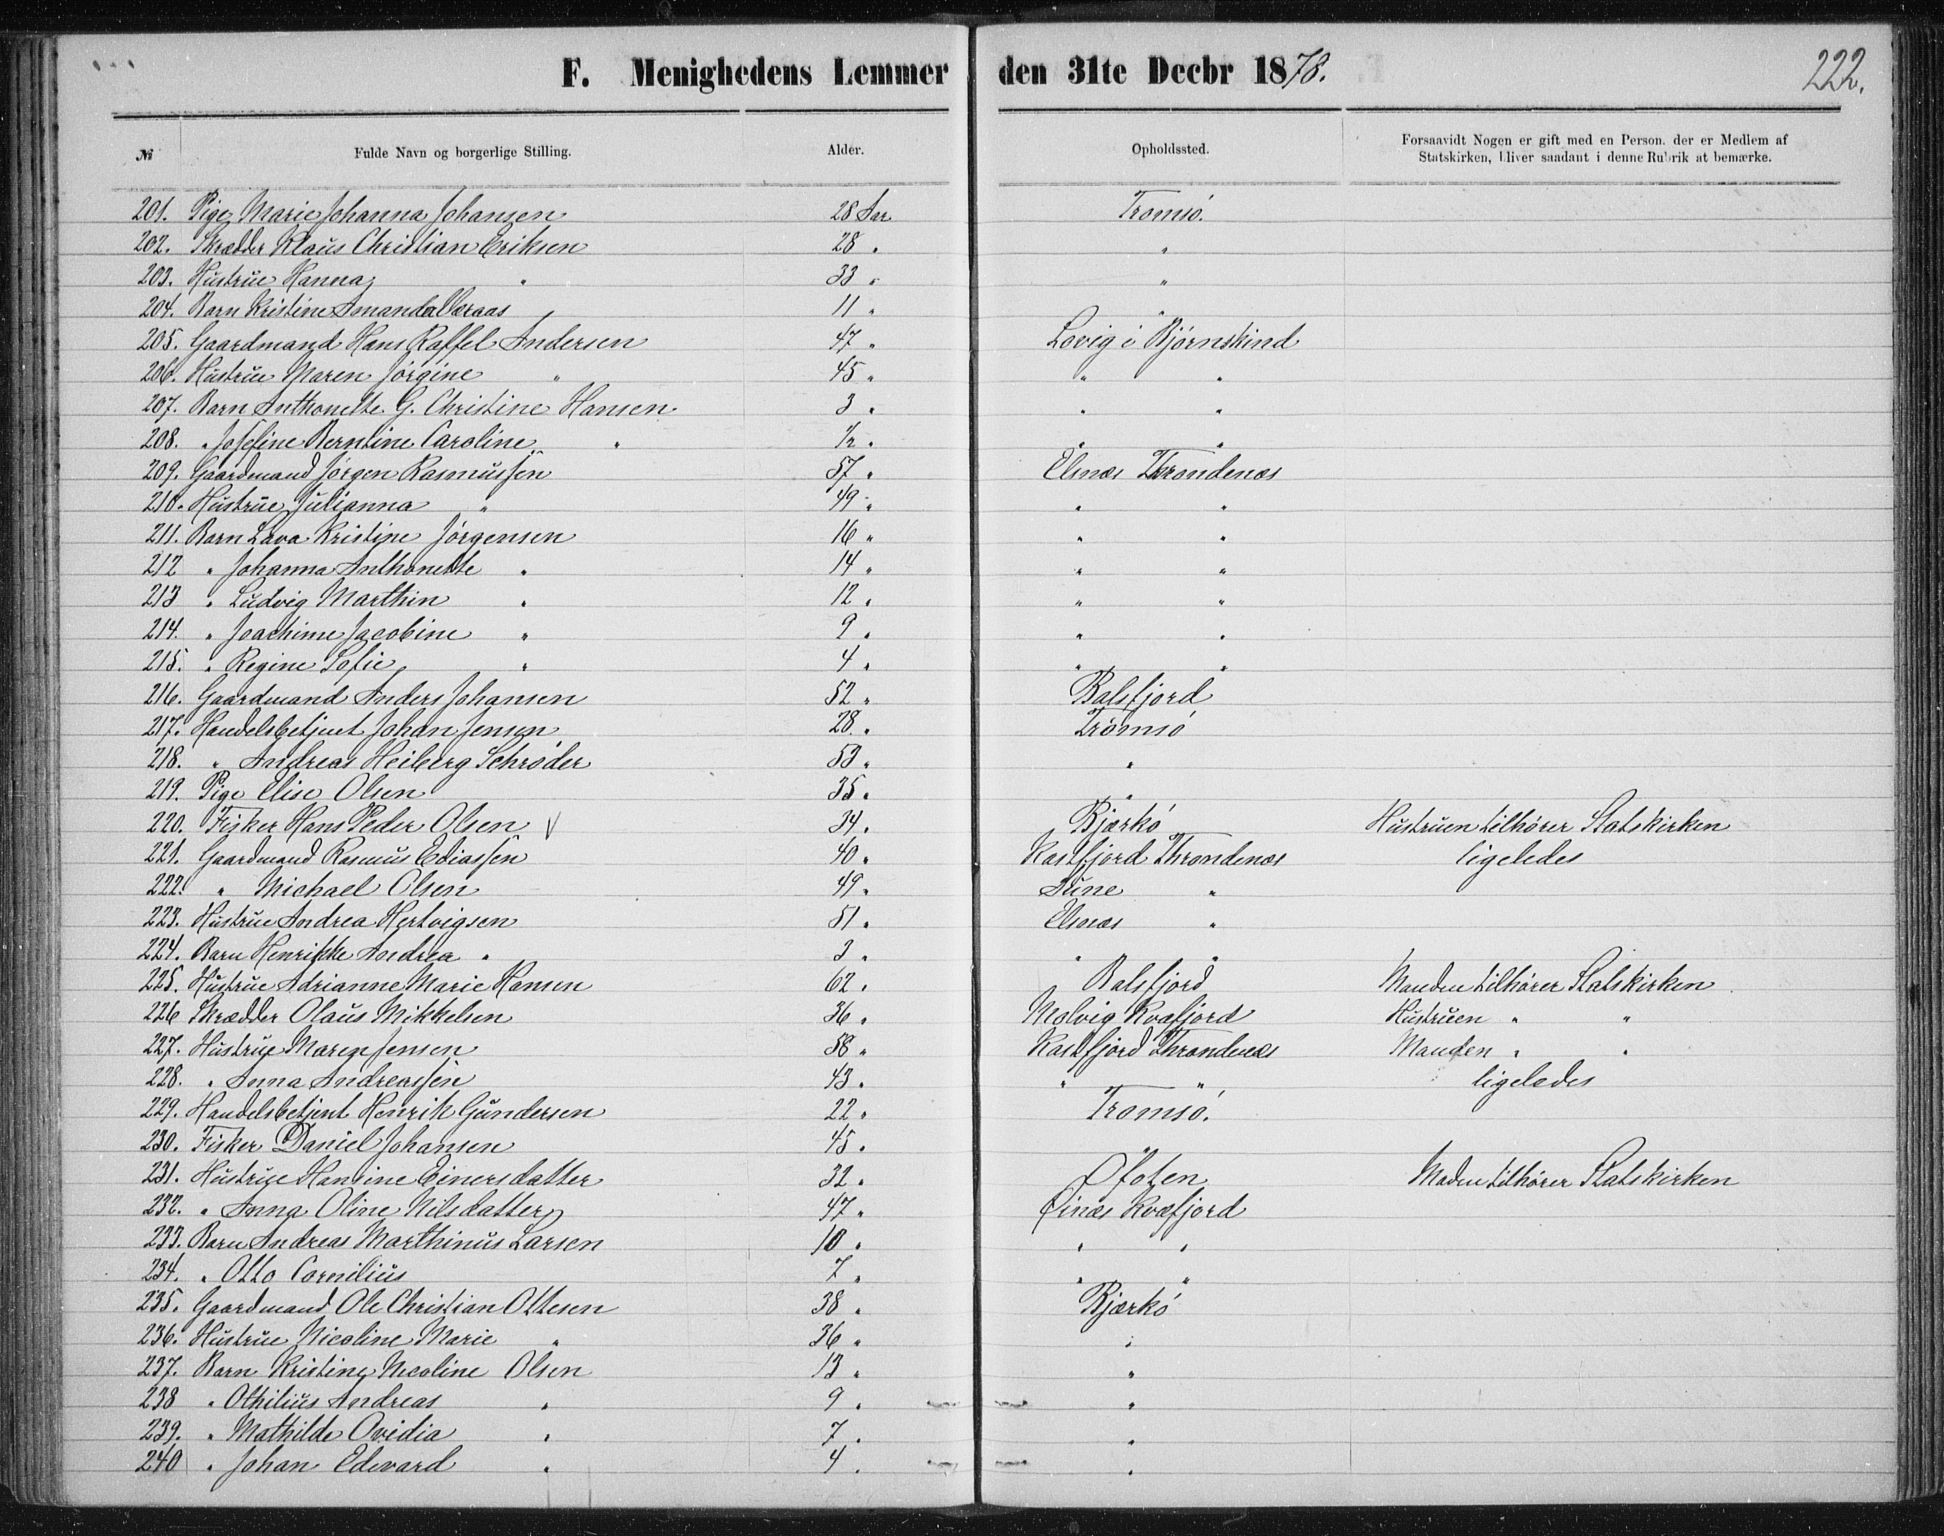 F. Menighedens Lemmer den 31te Decbr 1878. 222.
№ Fulde Navn og borgerlige Stilling. Alder. Opholdssted. Forsaavidt Nogen er gift med en Person, der er Medlem af
Statskirken, bliver saadant i denne Rubrik at bemærke.
201. Pige Marie Johanna Johansen 28 Aar Tromsö.
202. Skrædder Klaus Christian Eriksen 28 " "
203. Hustrue Hanna " 33 " "
204. Barn Kristine Amanda 11 " "
205. Gaardmand Hans Raffel Andersen 47 " Lovig i Bjørnskind
206. Hustrue Maren Jörgine " 45 " " "
207. Barn Anthonette G. Christine Hansen 3 " " "
208. " Josefine Berntine Caroline " 1/2 " " "
209. Gaardmand Jörgen Rasmussen 57 " Elsnæs Throndenæs
210. Hustrue Julianna " 49 " " "
211. Barn Lava Kristine Jörgensen 16 " " "
212 " Johanna Anthonette " 14 " " "
213 " Ludvig Marthin " 12 " " "
214. " Joachime Jacobine " 9 " " "
215. " Regine Sofie " 4 " " "
216. Gaardmand Anders Johansen 52 " Balsfjord
217. Handelsbetjent Johan Jensen 28 " Tromsö
218. " Andreas Heiberg Schrøder 53 " "
219. Pige Elise Olsen 35 " "
220. Fisker Hans Peder Olsen V 34 " Bjarkö Hustruen tilhører Statskirken
221. Gaardmand Rasmus Ediassen 40 " Kasfjord Throndenæs ligeledes
222. " Michael Olsen 49 " "
223. Hustrue Andrea Hertvigsen 51 " Elsnæs "
224. Barn Henrikke Andrea " 3 " " "
225. Hustrue Adrianne Marie Hansen 62 " Balsfjord Manden tilhører Statskirken
226 Skrædder Olaus Mikkelsen 36 " Melvig Kvæfjord Hustruen " "
227. Hustrue Maren Jensen 58 " Kasfjord Throndenæs Manden " "
228. " Anna Andreassen 43 " " " ligeledes
229. Handelsbetjent Henrik Gundersen 22 " Tromsö.
230. Fisker Daniel Johansen 45 "
231. Hustrue Hansine Einersdatter 32 " Ofoten Maden tilhører Statskirken
232. " Anna Oline Nilsdatter 47 " Kvæfjord
233. Barn Andreas Marthinus Larsen 10 " " "
234. " Otto Cornilius 7 " " "
235. Gaardmand Ole Christian Ottesen 38 " Bjarkö
236. Hustrue Nicoline Marie " 36 " "
237. Barn Kristine Nicoline Olsen 13 " "
238 " Othilius Andreas " 9 " "
239. " Mathilde Ovidia " 7 " "
240 " Johan Edevard " 4 " "